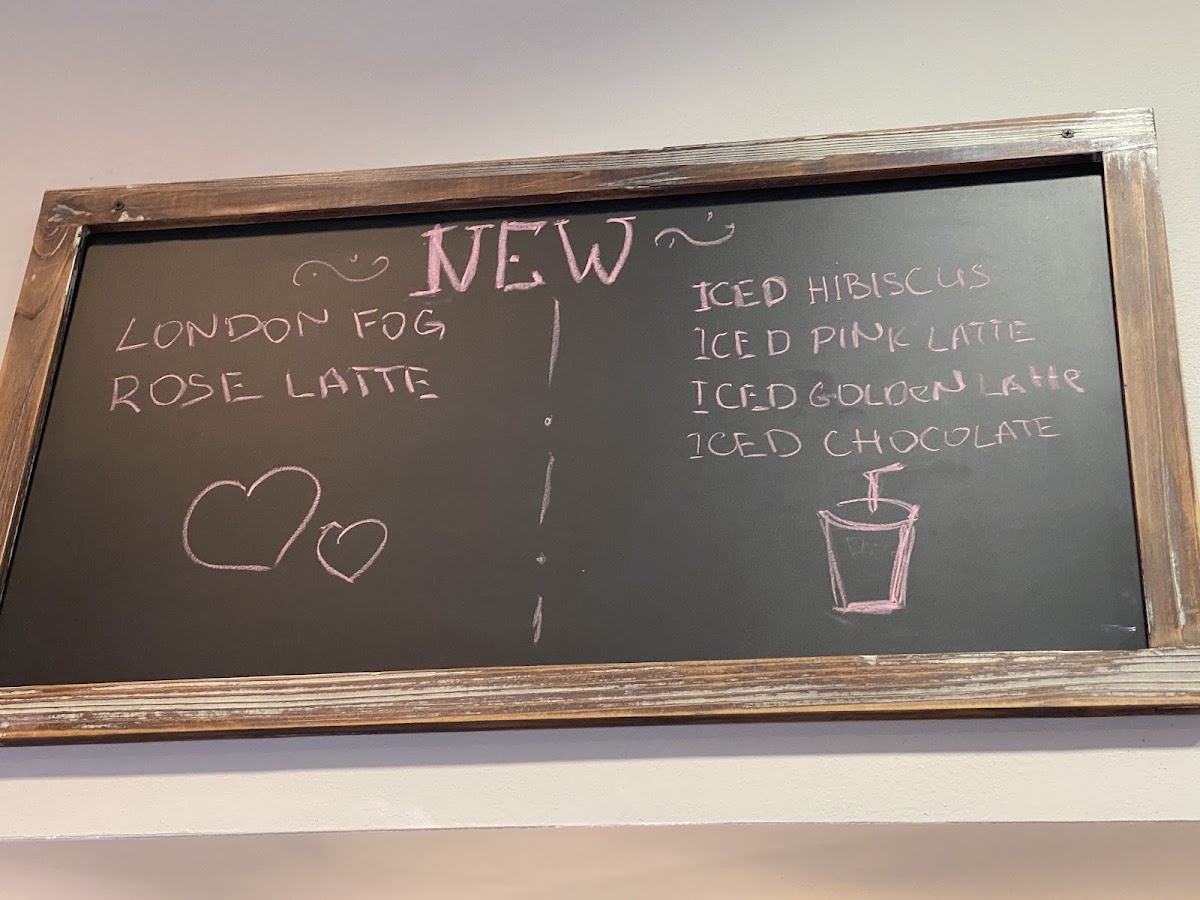 NEW
LONDON FOG
ROSE LATTE
ICED HIBISCUS
ICED PINK LATTE
ICED GOLDEN LATTE
ICED CHOCOLATE